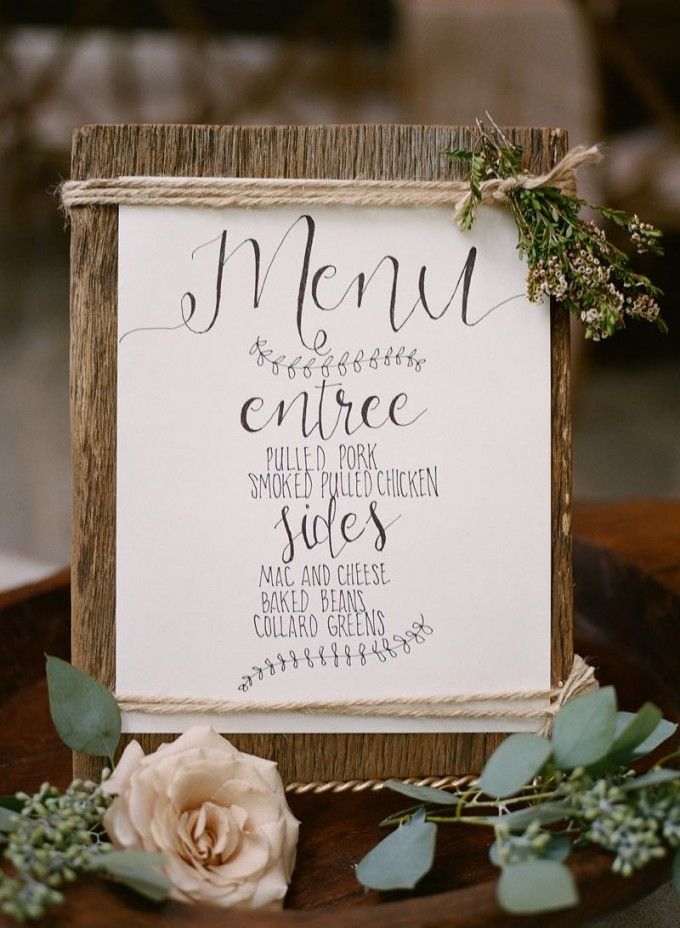 Menu
entree
PULLED PORK
SMOKED PULLED CHICKEN
sides
MAC AND CHEESE
BAKED BEANS
COLLARD GREENS